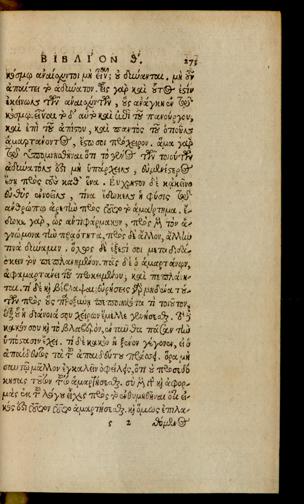 ΒΙΒΛΙΟΝ Θ. 275
κόσμῳ ἀναίσχυντοι μὴ εἶναι; οὐ δύνανται. μὴ οὖν
ἀπαίτει τὸ ἀδύνατον. εἷς γὰρ καὶ οὗτός ἐστιν
ἐκείνων τῶν ἀναισχύντων, οὓς ἀνάγκη ἐν τῷ
κόσμῳ εἶναι. τὸ δ' αὐτὸ καὶ ἐπὶ τοῦ πανούργου,
καὶ ἐπὶ τοῦ ἀπίστου, καὶ παντὸς τοῦ ὁτιοῦν
ἁμαρτάνοντος, ἔστω σοι πρόχειρον. ἅμα γὰρ
τῷ ὑπομνησθῆναι ὅτι τὸ γένος τῶν τοιούτων
ἀδύνατόν ἐστι μὴ ὑπάρχειν, εὐμενέστερος
ἔσῃ πρὸς τοὺς καθ' ἕνα. Εὔχρηστον δὲ κἀκεῖνο
εὐθὺς ἐννοεῖν, τίνα ἔδωκεν ἡ φύσις τῷ
ἀνθρώπῳ ἀρετὴν πρὸς τοῦτο τὸ ἁμάρτημα. ἔ-
δωκε γὰρ, ὡς ἀντιφάρμακον, πρὸς μὲν τὸν ἀ-
γνώμονα τὴν πραότητα, πρὸς δὲ ἄλλον, ἄλλην
τινὰ δύναμιν. ὅλως δὲ ἔξεστί σοι μεταδιδά-
σκειν τὸν πεπλανημένον. πᾶς δὲ ὁ ἁμαρτάνων,
ἀφαμαρτάνει τοῦ προκειμένου, καὶ πεπλάνη-
ται. τί δὲ καὶ βέβλαψαι; εὑρήσεις γὰρ μηδένα τού-
των πρὸς οὓς παροξύνῃ πεποιηκότα τι τοιοῦτον,
ἐξ οὗ ἡ διάνοιά σου χείρων ἔμελλε γενήσεσθαι. τὸ δὲ
κακόν σου καὶ τὸ βλαβερὸν, ἐνταῦθα πᾶσαν τὴν
ὑπόστασιν ἔχει. τί δὲ κακὸν ἢ ξένον γέγονεν, εἰ ὁ
ἀπαίδευτος τὰ τοῦ ἀπαιδεύτου πράσσει; ὅρα μὴ
σαυτῷ μᾶλλον ἐγκαλεῖν ὀφείλῃς, ὅτι οὐ προσεδό-
κησας τοῦτον τοῦτο ἁμαρτήσεσθαι. σὺ μὲν γὰρ καὶ ἀφορ-
μὰς ἐκ τοῦ λόγου εἶχες πρὸς τὸ ἐνθυμηθῆναι ὅτι εἰ-
κός ἐστι τοῦτον τοῦτο ἁμαρτήσεσθαι. καὶ ὅμως ἐπιλα-
s 2 θόμενος